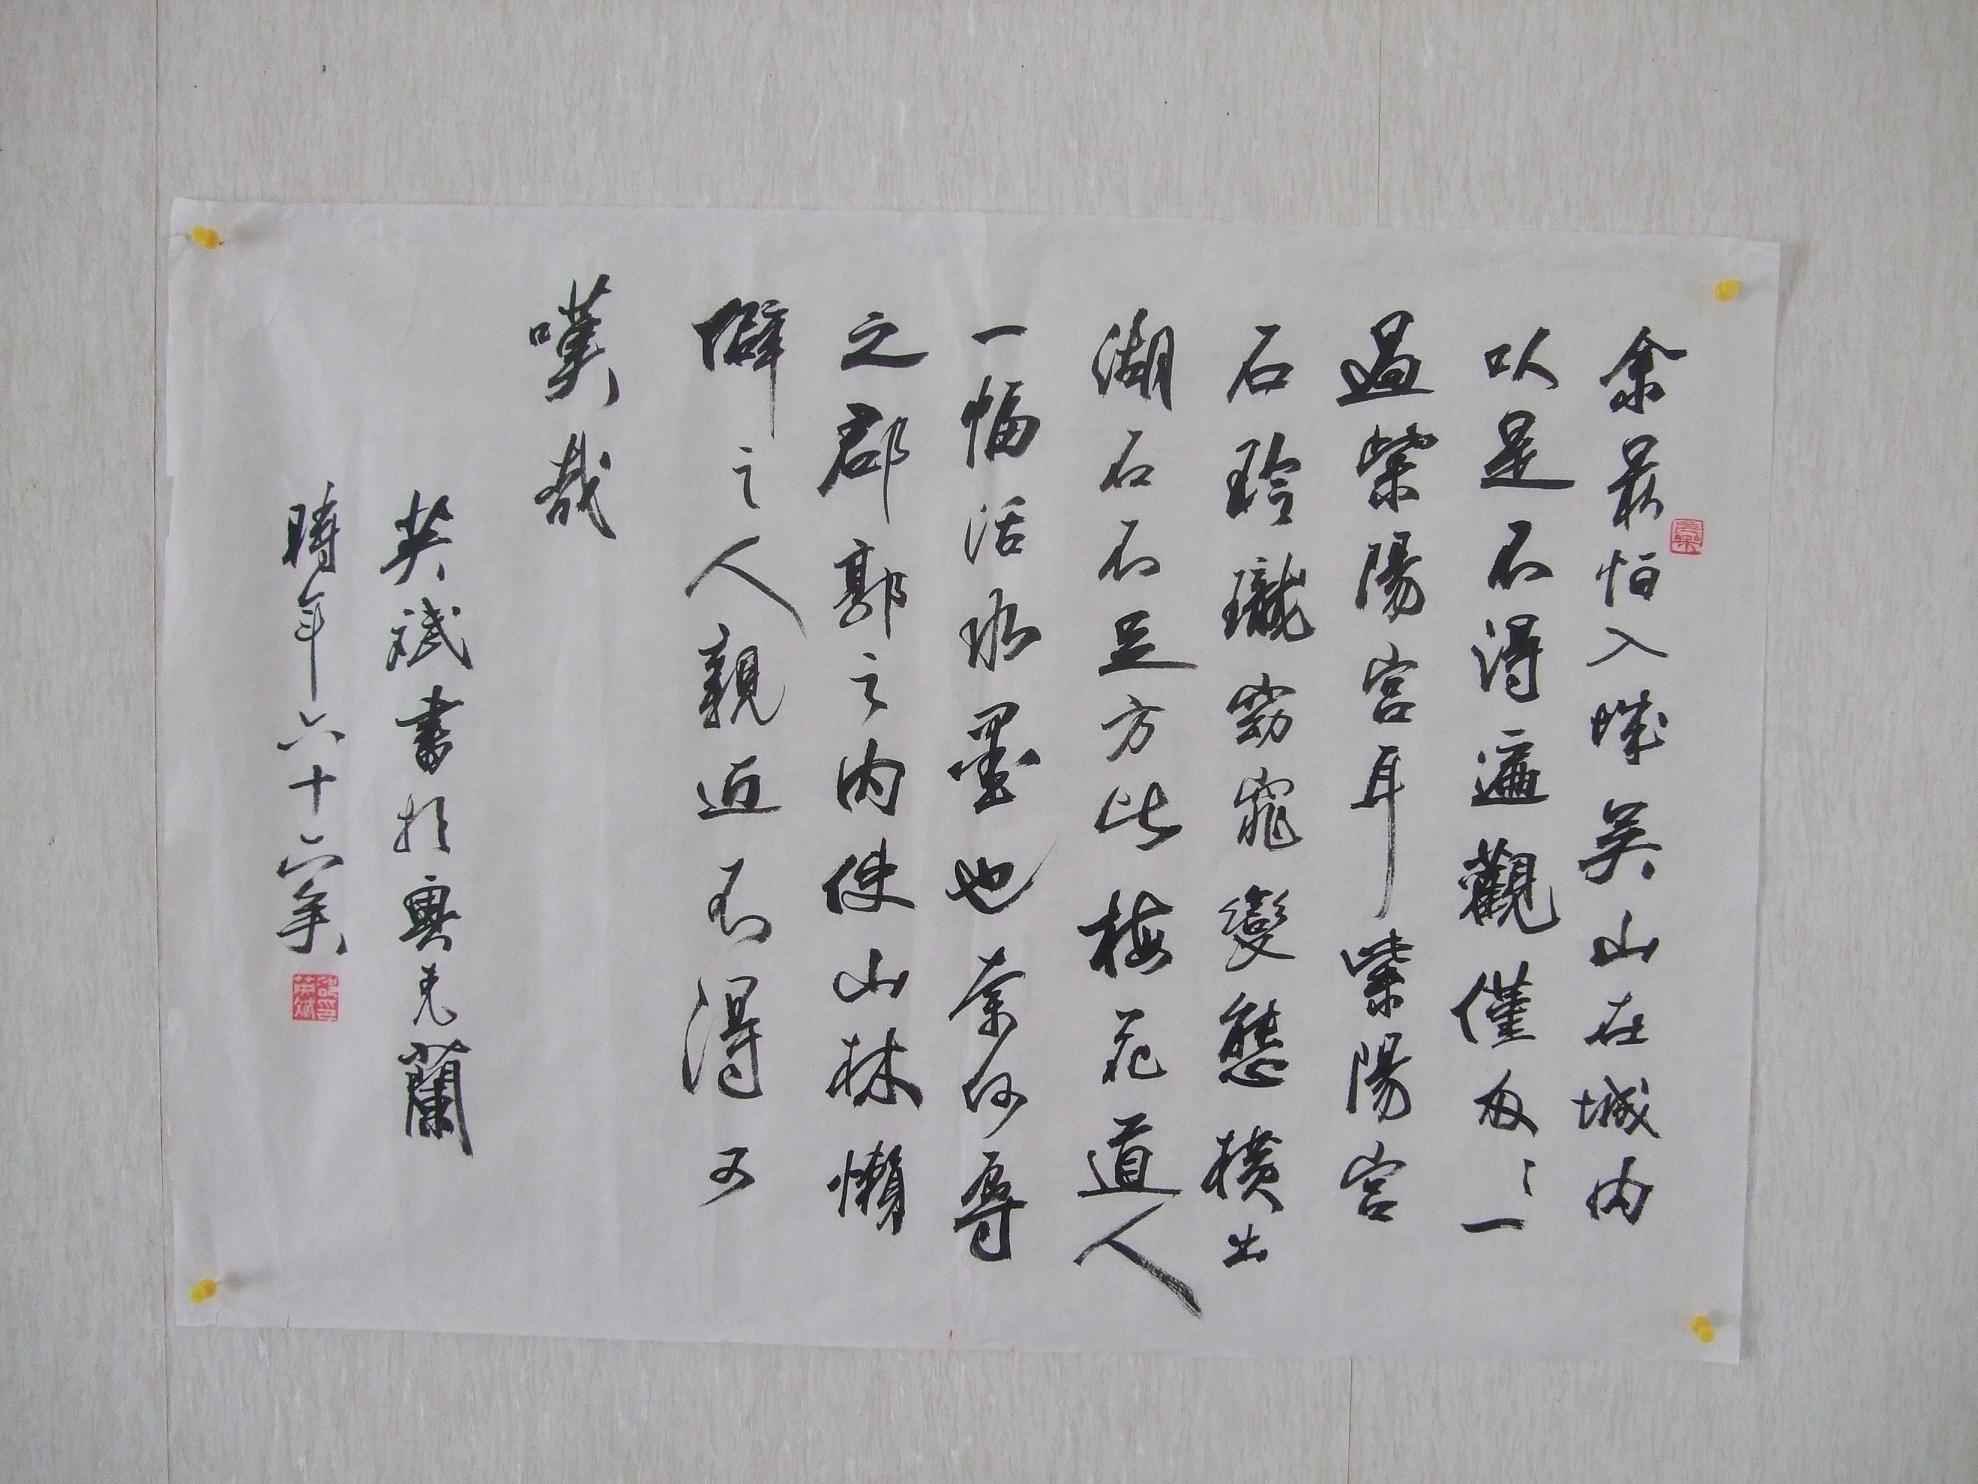 余最怕入城吴山在城内
以是不得遍觀僅匆〻一
過紫陽宫耳紫陽宫
石玲瓏窈窕變態横出
湖石不足方比梅花道人
一幅活水墨也奈何辱
之郡郭之内使山林懶
僻之人親近不得可
嘆哉
英斌書於奥克蘭
時年六十六矣